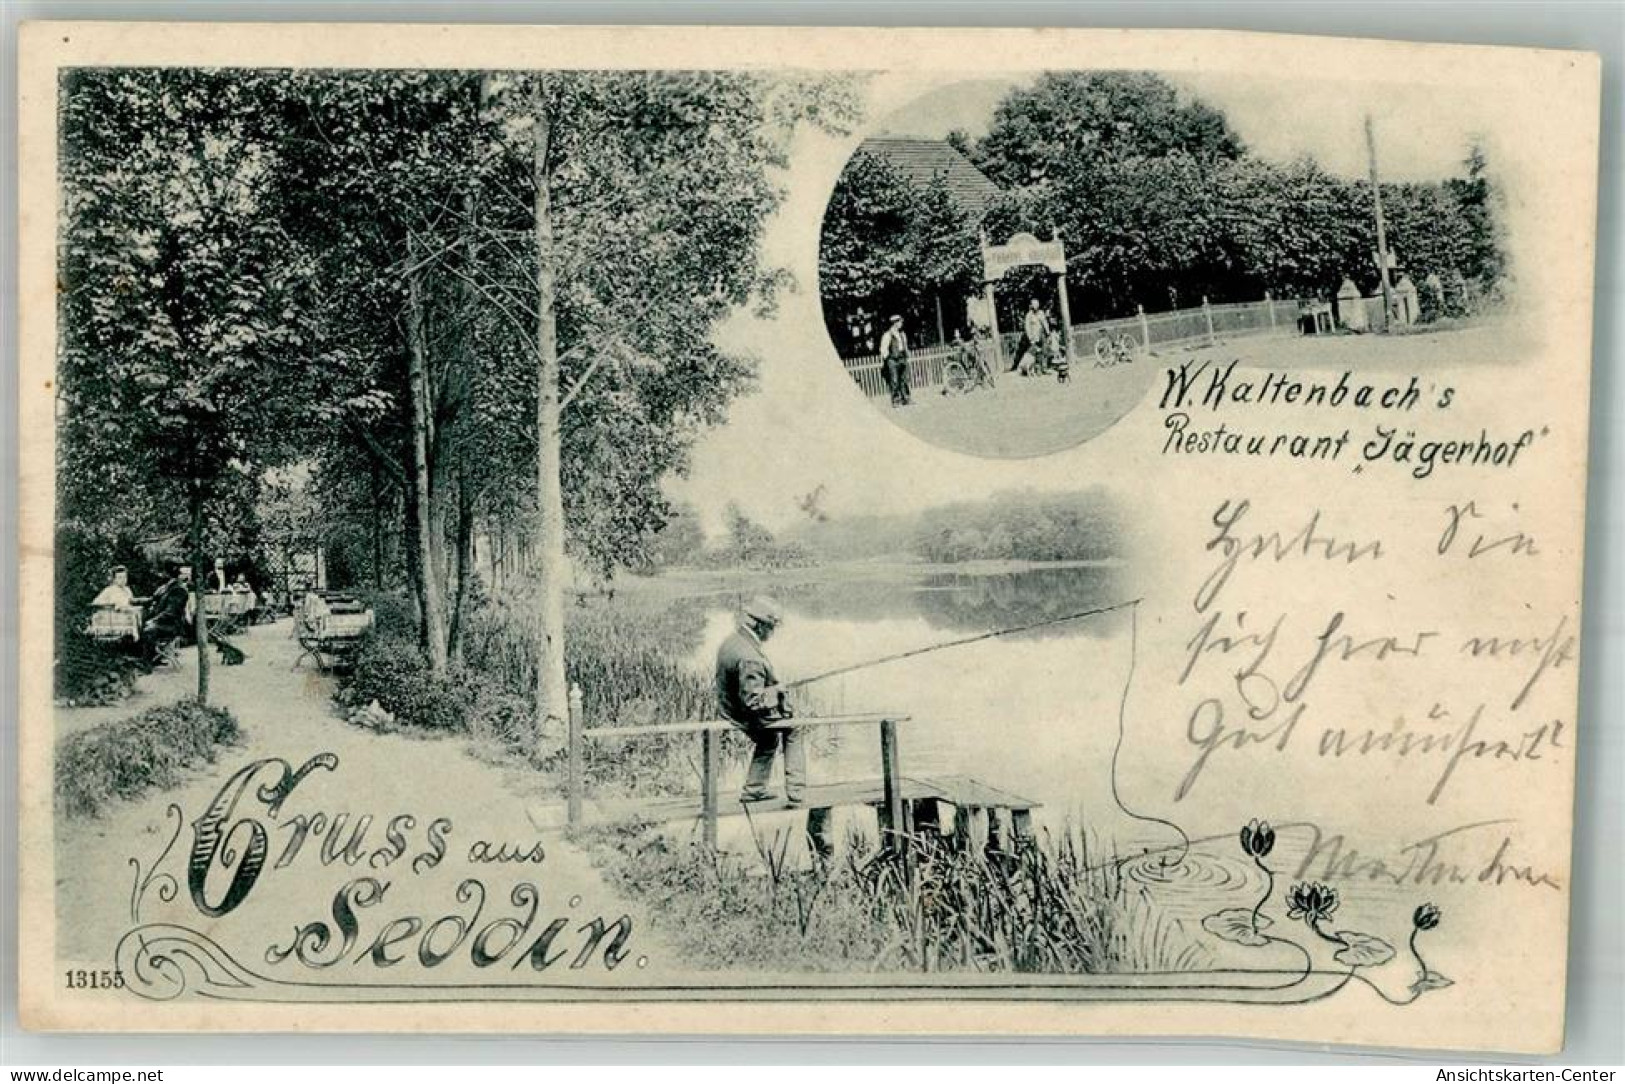 W. Kaltenbach's
Restaurant „Jägerhof"
Haben Sie
sich hier nicht
Gut amüsiert?
Gruss aus
Seddin.
13155
www.delcampe.net
Ansichtskarten-Center